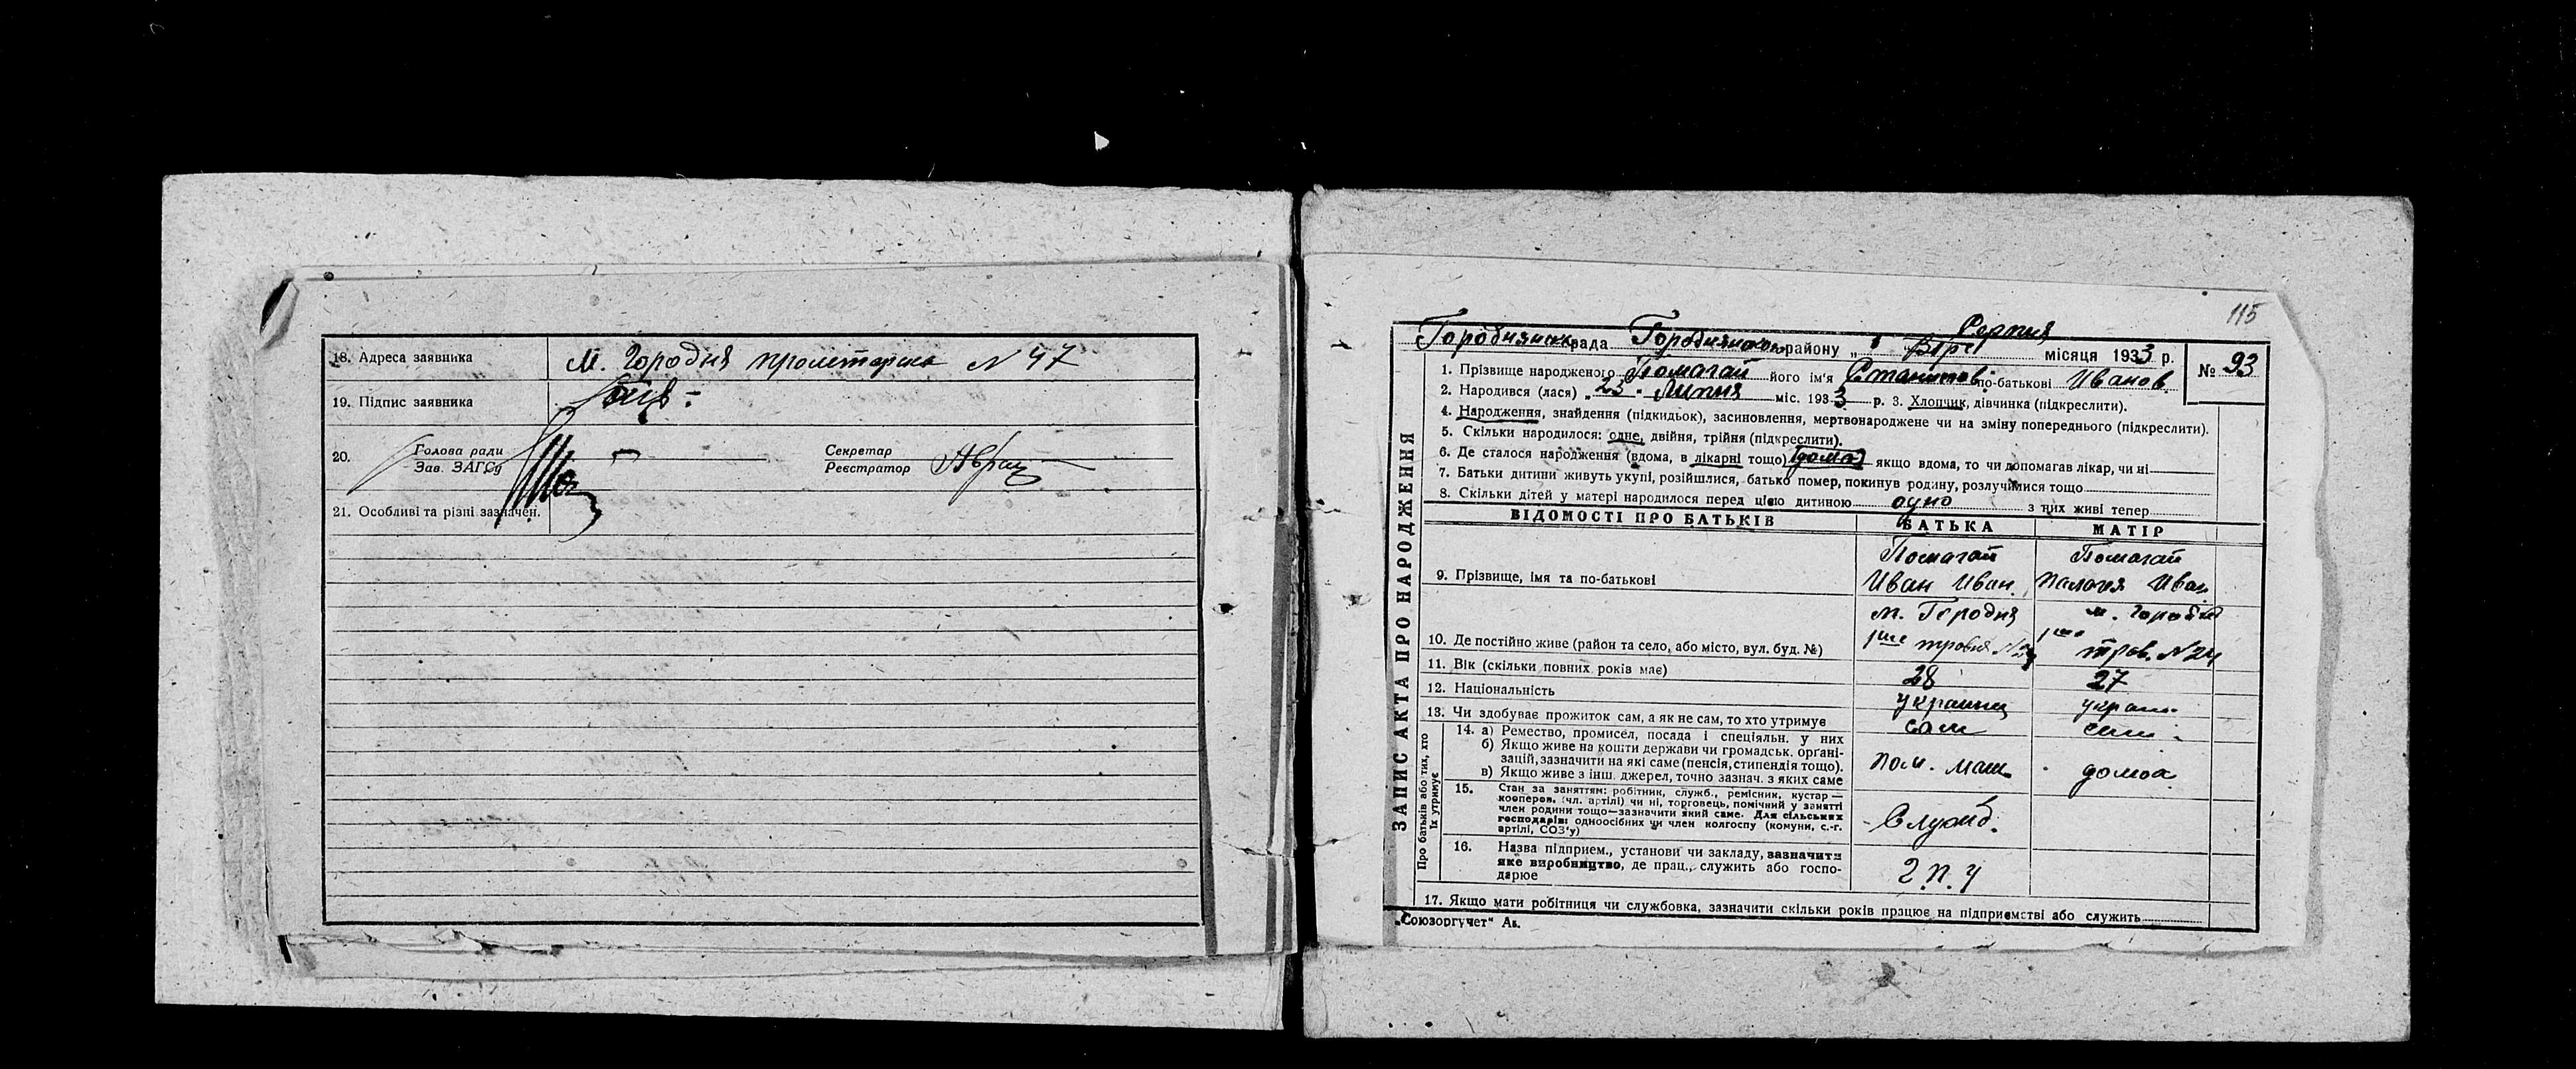 18. Адреса заявника м. Городня пролетарска N 47
19. Підпис заявника
20. Голова ради
Зав. ЗАГСу
Секретар
Реєстратор
21. Особливі та різні зазначен.
115
ЗАПИС АКТА ПРО НАРОДЖЕННЯ
Серпня
Городнянська рада Городнянського району „ місяця 1933 р.
№ 93
1. Прізвище народженого Помагай його ім'я Станислав по-батькові Иванов
2. Народився (лася) „23“ Липня міс. 1933 р. 3. Хлопчик, дівчинка (підкреслити).
4. Народження, знайдення (підкидьок), засиновлення, мертвонароджене чи на зміну попереднього (підкреслити).
5. Скільки народилося: одне, двійня, трійня (підкреслити).
6. Де сталося народження (вдома, в лікарні тощо) (дома) якщо вдома, то чи допомагав лікар, чи ні
7. Батьки дитини живуть укупі, розійшлися, батько помер, покинув родину, розлучилися тощо
8. Скільки дітей у матері народилося перед цією дитиною одно з них живі тепер
ВІДОМОСТІ ПРО БАТЬКІВ БАТЬКА МАТІР
Помагай Помагай
9. Прізвище, імя та по-батькові Иван Иван. Палагея Иван
м. Городня м. Городня
10. Де постійно живе (район та село, або місто, вул. буд. №) 1ше травня N 24 1ше трав. N 24
11. Вік (скільки повних років має) 28 27
12. Національність украинц украин.
13. Чи здобуває прожиток сам, а як не сам, то хто утримує сам
Про батьків або тих, хто
їх утримує
14. а) Ремество, промисел, посада і спеціяльн. у них
б) Якщо живе на кошти держави чи громадськ. орґані-
зацій, зазначити на які саме (пенсія, стипендія тощо).
в) Якщо живе з інш. джерел, точно зазнач. з яких саме
пом. маш. домоа
15. Стан за заняттям: робітник, служб., ремісник, кустар —
кооперов. (чл. артілі) чи ні, торговець, помічний у занятті
член родини тощо—зазначити який саме. Для сільських
господарів: одноосібних чи член колгоспу (комуни, с.-г.
артілі, СОЗ'у)
Служб.
16. Назва підприєм., установи чи закладу, зазначити
яке виробництво, де прац., служить або госпо-
дарює
Г.П.У
17. Якщо мати робітниця чи службовка, зазначити скільки років працює на підприємстві або служить
„Союзоргучет“ Ав.